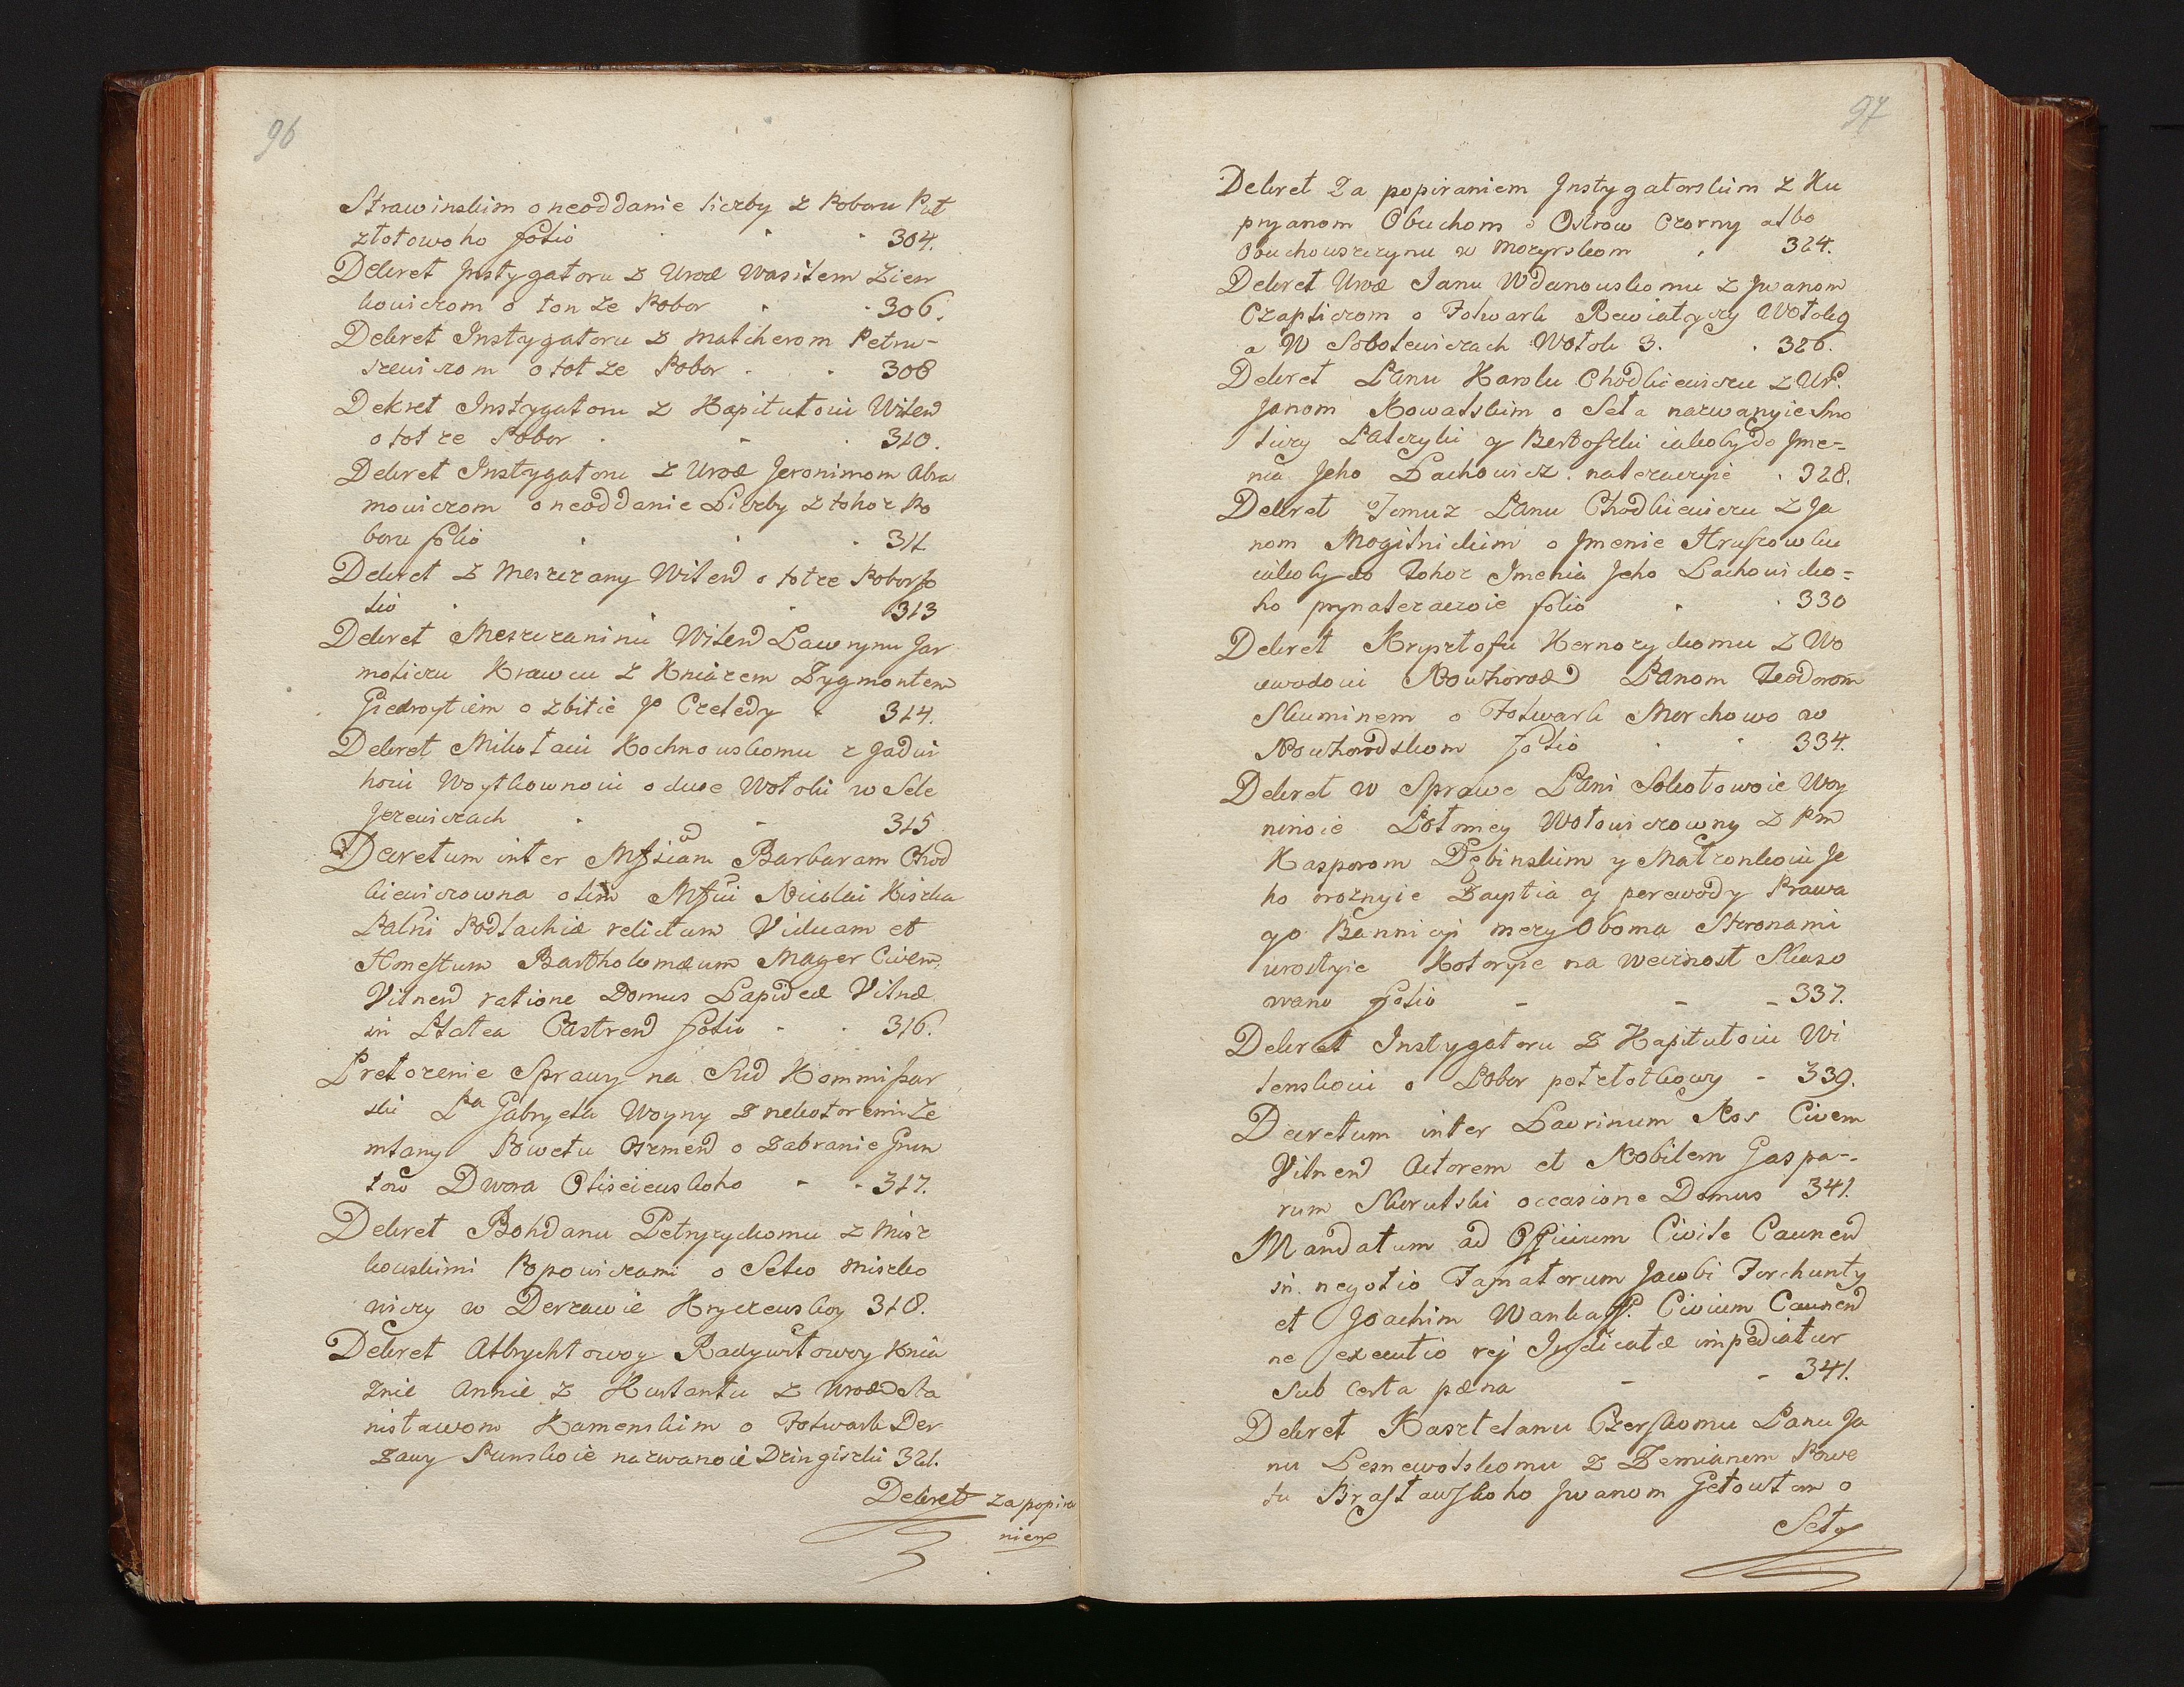 96
Strawinskim o neoddanie liczby z Poboru Puł
złotowoho folio 304.
Dekret Instygatoru z Urod Wasilem Zien
kowiczom o ton że Pobor 306.
Dekret Instygatoru z Malcherom Petru-
szewiczom o tot że Pobor 308
Dekret Instygatoru z Kapitułoiu Wilen
o tot że Pobor 310.
Dekret Instygatoru z Urod Jeronimom Abra
mowiczom o neoddanie Liczby z tohoż Po
boru folio 311
Dekret z Meszczany Wilen o totże Pobor fo
lio 313
Dekret Meszczaninu Wilen Ławrynu Jar
moliczu Krawcu z Kniazem Zygmontem
Giedroytiem o zbitie Jo Czeledy 314.
Dekret Mikołaiu Kochnowskomu z Jadwi
hoiu Woytkownoiu o dwie Wołoki w Sele
Jezewiczach 315
Decretum inter Mffcam Barbaram Chod
kiewiczowna olim Mffci Nicolai Kiszka
Palni Podlachiæ relictam Viduam et
Honestum Bartholomæum Mager Civem
Vilnen ratione Domus Lapideæ Vilnæ
in Platea Castren folio 316.
Prełożenie Sprawy na Sud Kommissar
ski Pa Gabryela Woyny z nekotoremi Ze
młany Powetu Oszmen o Zabranie Grun
tow Dwora Oliscieuskoho 317.
Dekret Bohdanu Petryżyckomu z Misz
kouskimi Popowiczami o Selco Miszko
wiczy w Derzawie Kryczewskoy 318.
Dekret Albrychtowoy Radywiłowoy Knia
znie Annie z Kurlantu z Urod Sta
nisławom Kamenskim o Folwark Der
zawy Punskoie nazwanoie Dzingiszki 321.
Dekret za popira
niem
97
Dekret Za popiraniem Instygatorskim z Ku
pryanom Obuchom o Ostrow Czorny albo
Obuchowszczynu w Mozyrskom 324.
Dekret Urod Janu Wdanouskomu z Iwanom
Czapliczom o Folwark Rewiatyczy Wołok 9
a W Sobolewiczach Wołok 3. 326.
Dekret Panu Karolu Chodkiewiczu z Ur.
Janom Kowalskim o Seła nazwanyie Smo
liczy Patczyki y Bertoszki iakoby do Jme-
nia Jeho Lachowicz. należaczyie 328.
Dekret Tomuz Panu Chodkiewiczu z Ja
nom Mogilnickim o Jmenie Hruszowku
iakoby do tohoz Imenia Jeho Lachowicko=
ho prynależaczoie folio 330
Dekret Krysztofu Kernożyckomu z Wo
iewodoiu Nowhorod Panom Teodorom
Skuminem o Folwark Morchowo w
Nowhorodskom folio 334.
Dekret w Sprawe Pani Sokołowoie Woy
ninoie Połoney Wołowiczowny z Pm
Kasporom Dębinskim y Małżonkoiu Je
ho rożnyie Zapisia y perewody Prawa
go Bannicyi mezy Oboma Storonami
urosłyie Kotoryie na Wecznost Skaso
wano folio 337.
Dekret Instygatoru z Kapitułoiu Wi
lenskoiu o Pobor połzłotkowy 339.
Decretum inter Lavrinum Kos Civem
Vilnen Actorem et Nobilem Gaspa-
rum Skirutski occasione Domus 341.
Mandatum ad Officium Civile Caunen
in negotio Famatorum Jacobi Forchunty
et Joachim Wanhaff. Civium Caunen
ne executio rej Judicatæ impediatur
sub certa pæna 341.
Dekret Kasztelanu Czerskomu Panu Ja
nu Lesnewolskomu z Zemianem Powe
tu Brasławskoho Iwanom Gełowtom o
Seło